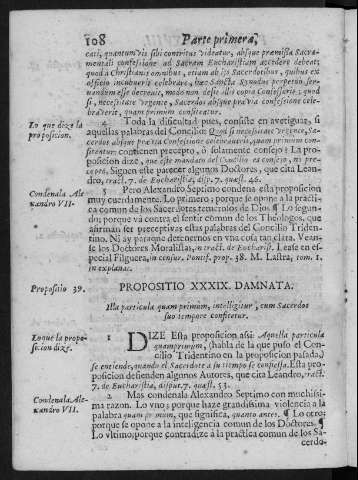 108 Parte primera,
cati, quantumvis sibi contritus videatur, absque præmissa Sacra-
mentali confessione ad Sacram Eucharistiam accedere debeat;
quod à Christianis omnibus, etiam ab iis Sacerdotibus, quibus ex
officio incubuerit celebrare, hæc Sancta Synodus perpetuo ser-
vandum esse decrevit, modo non desit illis copia Confessarij; quod
si, necessitate vrgente, Sacerdos absque prævia confessione cele-
braverit, quam primum confiteatur.
Lo que dize la proposicion.
2 Toda la dificultad pues, consiste en averiguar, si
aquellas palabras del Concilio: Quod si necessitate vrgence, Sa-
cerdos absque prævia Confessione celebraverit, quam primum con-
fiteatur: contienen precepto, ò solamente consejo? La pro-
posicion dize, que este mandato del Concilio es consejo, ni pre-
cepto. Siguen este parecer algunos Doctores, que cita Lean-
dro, tract. 7. de Eucharistia, disp. 7. quæst. 46.
Condenala Alexandro VII.
3 Pero Alexandro Septimo condena esta proposicion
muy cuerdamente. Lo primero; porque se opone a la practi-
ca comun de los Sacerdotes temerosos de Dios. ¶ Lo segun-
do; porque và contra el sentir comun de los Theologos, que
afirman ser preceptivas estas palabras del Concilio Triden-
tino. Ni ay paraque detenernos en vna cosa tan clara. Vean-
se los Doctores Moralistas, en tract. de Eucharist. Lease en es-
pecial Filguera, in censur. Pontif. prop. 38. M. Lastra, tom. 1.
in explanac.
Propositio 39.
PROPOSITIO XXXIX. DAMNATA.
Illa particula quam primum, intelligitur, cum Sacerdos
suo tempore confitetur.
Lo que la proposicion dize.
1 DIZE Esta proposicion assi: Aquella particula
quamprimum, (habla de la que puso el Con-
cilio Tridentino en la proposicion pasada,)
se entiende, quando el Sacerdote a su tiempo se confiessa. Esta pro-
posicion defienden algunos Autores, que cita Leandro, tract.
7. de Eucharistia, disput. 7. quæst. 53.
Condenala Alexandro VII.
2 Mas condenala Alexandro Septimo con muchissi-
ma razon. Lo vno; porque haze grandissima violencia a la
palabra quam primum, que significa, quanto antes. ¶ Lo otro;
porque se opone a la inteligencia comun de los Doctores. ¶
Lo vltimo; porque contradize à la practica comun de los Sa-
cerdo-